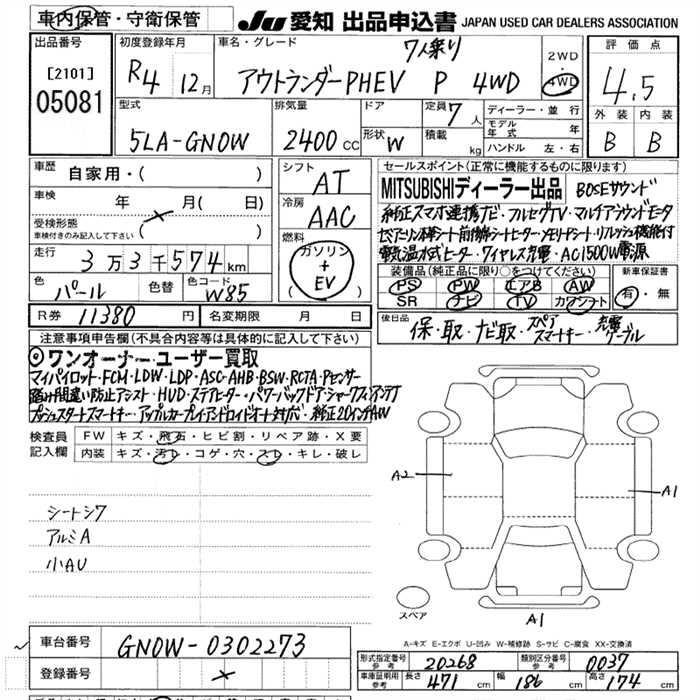 車内保管・守衛保管
JU 愛知 出品申込書 JAPAN USED CAR DEALERS ASSOCIATION
出品番号
[2101]
05081
初度登録年月
R4 12月
車名・グレード
7人乗り
アウトランダーPHEV P 4WD
2WD
4WD
評価点
4.5
外装 内装
B B
型式
5LA-GN0W
排気量
2400cc
ドア
形状 W
定員 7人
積載 kg
ディーラー・並行
モデル年式 年
ハンドル 左・右
車歴
自家用・( )
車検
年 月( 日)
受検形態
車検付きのみ記入して下さい
( × )
走行
3万3千574km
色
パール
色替
色コード
W85
シフト
AT
冷房
AAC
燃料
ガソリン
+
EV
( )
セールスポイント(正常に機能するものに限ります)
MITSUBISHIディーラー出品 BOSEサウンド
純正スマホ連携ナビ・フルセグTV・マルチアラウンドモニタ
セミアニリン本革シート前後席シートヒーター・メモリードシート・リフレッシュ機能付
電気温水式ヒーター・ワイヤレス充電・AC1500W電源
装備品(純正品に限り○をつけてください)
PS PW エアB AW
SR ナビ TV カワシート
新車保証書
有・無
R券 11380円
名変期限 月 日
後日品
保・取・ナビ取・スペアスマートキー・充電ケーブル
注意事項申告欄(不具合内容等は具体的に記入して下さい)
◎ワンオーナー・ユーザー買取
マイパイロット・FCM・LDW・LDP・ASC・AHB・BSW・RCTA・Pセンサー
踏み間違い防止アシスト・HUD・ステアヒーター・パワーバックドア・シャークフィンアンテナ
プッシュスタートスマートキー・アップルカープレイ・アンドロイドオート対応・純正20インチAW
検査員
記入欄
FW キズ・飛石・ヒビ割・リペア跡・X要
内装 キズ・汚レ・コゲ・穴・スレ・キレ・破レ
シートシワ
アルミA
小AU
A2
A1
A1
スペア
A-キズ E-エクボ U-凹み W-補修跡 S-サビ C-腐食 XX-交換済
車台番号
GN0W-0302273
登録番号
×
形式指定番号
参考
20268
類別区分番号
参考
0037
車庫証明用
参考
長さ 471cm
幅 186cm
高さ 174cm